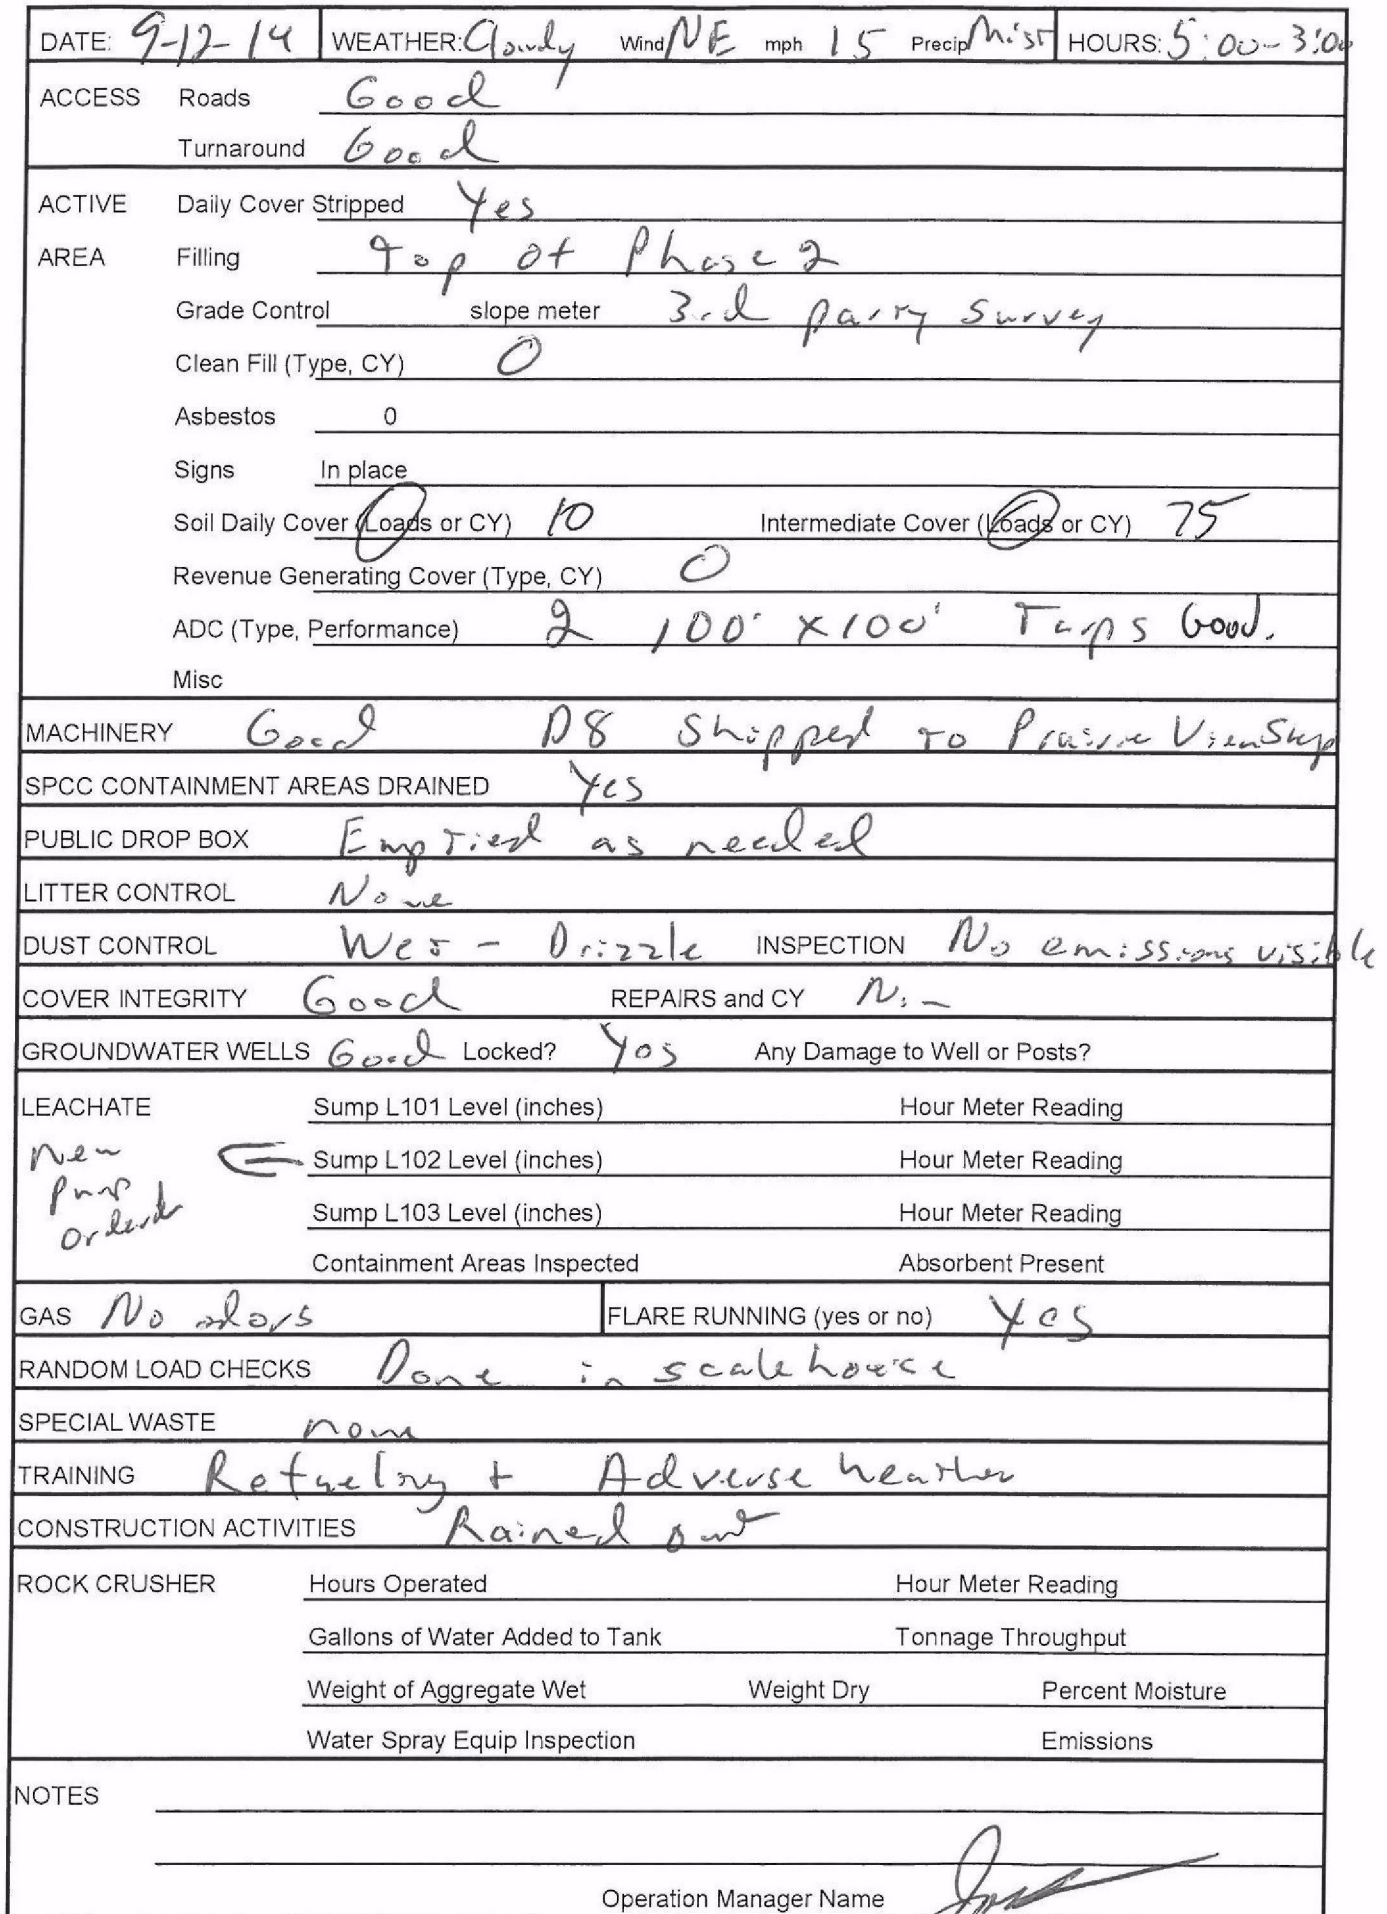 DATE: 9-12-14 WEATHER: Cloudy Wind NE mph 15 Precip Mist HOURS: 5:00-3:00
ACCESS Roads Good
Turnaround Good
ACTIVE Daily Cover Stripped Yes
AREA Filling Top of Phase 2
Grade Control slope meter 3rd party survey
Clean Fill (Type, CY) 0
Asbestos 0
Signs In place
Soil Daily Cover (Loads or CY) 10 Intermediate Cover (Loads or CY) 75
Revenue Generating Cover (Type, CY) 0
ADC (Type, Performance) 2 100' x100' Tarps Good.
Misc
MACHINERY Good D8 Shipped to Prairie View
SPCC CONTAINMENT AREAS DRAINED Yes
PUBLIC DROP BOX Emptied as needed
LITTER CONTROL None
DUST CONTROL Wet - Drizzle INSPECTION No emissions visible
COVER INTEGRITY Good REPAIRS and CY
GROUNDWATER WELLS Good Locked? Yes Any Damage to Well or Posts?
LEACHATE Sump L101 Level (inches) Hour Meter Reading
New Sump L102 Level (inches) Hour Meter Reading
pump
ordered Sump L103 Level (inches) Hour Meter Reading
Containment Areas Inspected Absorbent Present
GAS No odors FLARE RUNNING (yes or no) Yes
RANDOM LOAD CHECKS Done in scalehouse
SPECIAL WASTE none
TRAINING Refueling + Adverse weather
CONSTRUCTION ACTIVITIES Rained out
ROCK CRUSHER Hours Operated Hour Meter Reading
Gallons of Water Added to Tank Tonnage Throughput
Weight of Aggregate Wet Weight Dry Percent Moisture
Water Spray Equip Inspection Emissions
NOTES
Operation Manager Name